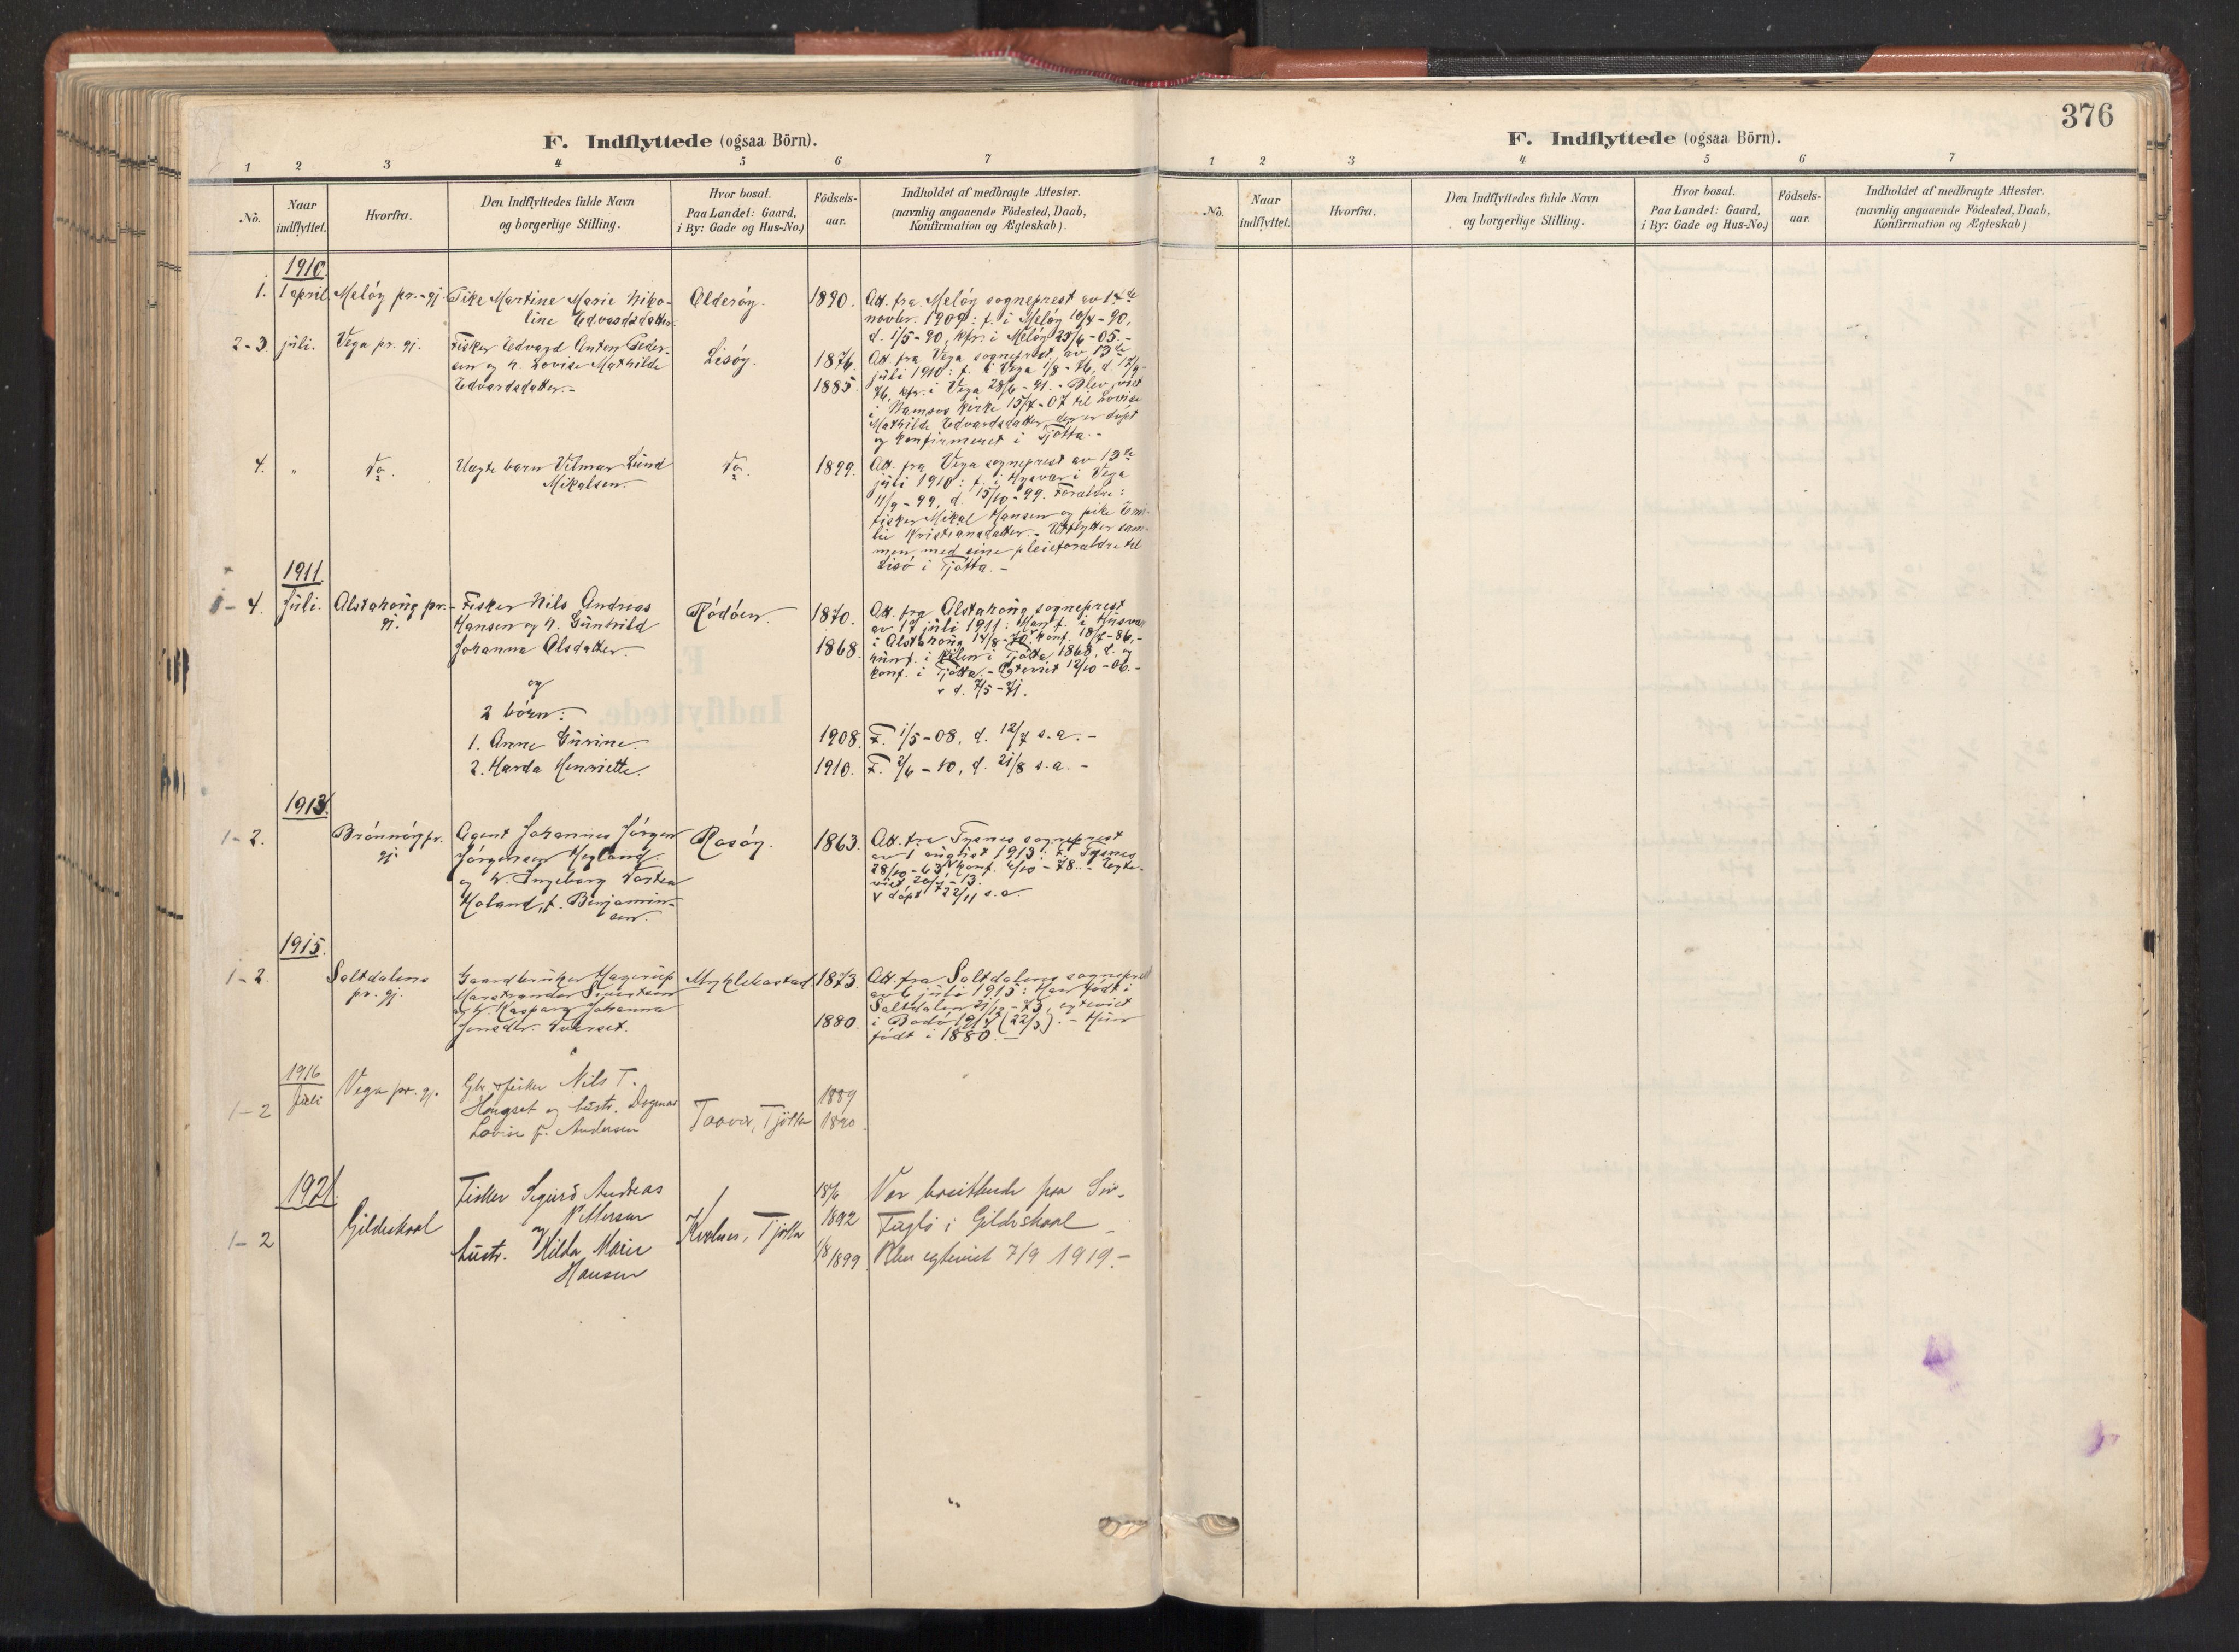 376
F. Indflyttede (ogsaa Börn).
1 2 3 4 5 6 7
No. Naar indflyttet. Hvorfra. Den Indflyttedes fulde Navn og borgerlige Stilling. Hvor bosat. Paa Landet: Gaard, i By: Gade og Hus-No.) Födsels-aar. Indholdet af medbragte Attester. (navnlig angaaende Födested, Daab, Konfirmation og Ægteskab).
1910.
1. 1 april Melöy pr.-gj. Pike Martine Marie Niko- Alderöy. 1890. Att. fra Melöy sogneprest av 17de
line Edvardsdatter. novbr. 1909: f. i Melöy 10/4-90,
d. 1/5-90, kfr. i Melöy 25/6-05.-
2-3. juli. Vega pr. gj. Fisker Edvard Anton Peder- Lisöy. 1876. Att. fra Vega sogneprest av 13de
sen og h. Lovise Mathilde juli 1910: f. i Vega 1/8-76, d. 17/9-
Edvardsdatter.- 1885. 76, kfr. i Vega 28/6-91.- Blev viet
i Namsos kirke 15/7-07 til Lovise
Mathilde Edvardsdatter, der er döpt
og konfirmeret i Tjötta.-
4. " Do. Uegte barn Vilmar Lund Do. 1899. Att. fra Vega sogneprest av 13de
Mikalsen. juli 1910: f. i Hysvær i Vega
11/9-99, d. 15/10-99. Foraldre:
fisker Mikal Hansen og pike Emi-
lie Kristiansdatter.- Utflytter sam-
men med sine pleieforaldre til
Lisö i Tjötta.-
1911.
1-4. Juli. Alstahoug pr.- Fisker Nils Andreas Rödöen. 1870. Att. fra Alstahoug sogneprest
gj. Hansen og h. Gunhild av 17 juli 1911: Han f. i Husvær
Johanna Olsdatter. 1868. i Alstahoug 14/8-70, konf. 18/7-86,-
hun f. i Kilen i Tjötta 1868, d. og
konf. i Tjötta.- Egteviet 12/10-06.-
v d. 7/5-71.
og
2 börn:
1. Anne Gurine. 1908. F. 1/5-08, d. 12/7 s.a.-
2. Harda Henriette. 1910. F. 2/6-10, d. 21/8 s.a.-
1913.
1-2. Brönnöy pr. Agent Johannes Jörgen Rosöy. 1863. Att. fra Tysnes sogneprest
gj. Jörgensen Hegland av 1 august 1913: f. i Tysnes
og h. Ingeborg 28/10-63, konf. 6/10-78.- Egte-
Haland, f. Benjamin- viet 20/7-13.
sen. v döpt 22/11 s.a.
1915.
1-2. Saltdalens Gaardbruker Hagerup Myklebostad 1873. Att. fra Saltdalens sogneprest
pr. gj. Marstrander av 6 juli 1915: Han födt i
og h. Kaspara Johanna Saltdalen 21/12-73, egteviet
Jensdtr. 1880. i Bodö (22/3).- Hun
födt i 1880.-
1916
1-2 Juli Vega pr. gj. Gbr. fisker Nils T. 1889
og hustr. Dagmar Tjötta 1890.
Lovise f. Andersen
1921.
1-2 Gildeskaal Fisker Sigurd Andreas 18/6 Var bosittende paa Sör-
Pettersen 1892 Fuglö i Gildeskaal -
og Kvalnes, Tjötta
hustr. Hilda Marie 1/8 1899. Blev egteviet 7/9 1919.-
Hansen
F. Indflyttede (ogsaa Börn).
1 2 3 4 5 6 7
No. Naar indflyttet. Hvorfra. Den Indflyttedes fulde Navn og borgerlige Stilling. Hvor bosat. Paa Landet: Gaard, i By: Gade og Hus-No.) Födsels-aar. Indholdet af medbragte Attester. (navnlig angaaende Födested, Daab, Konfirmation og Ægteskab)